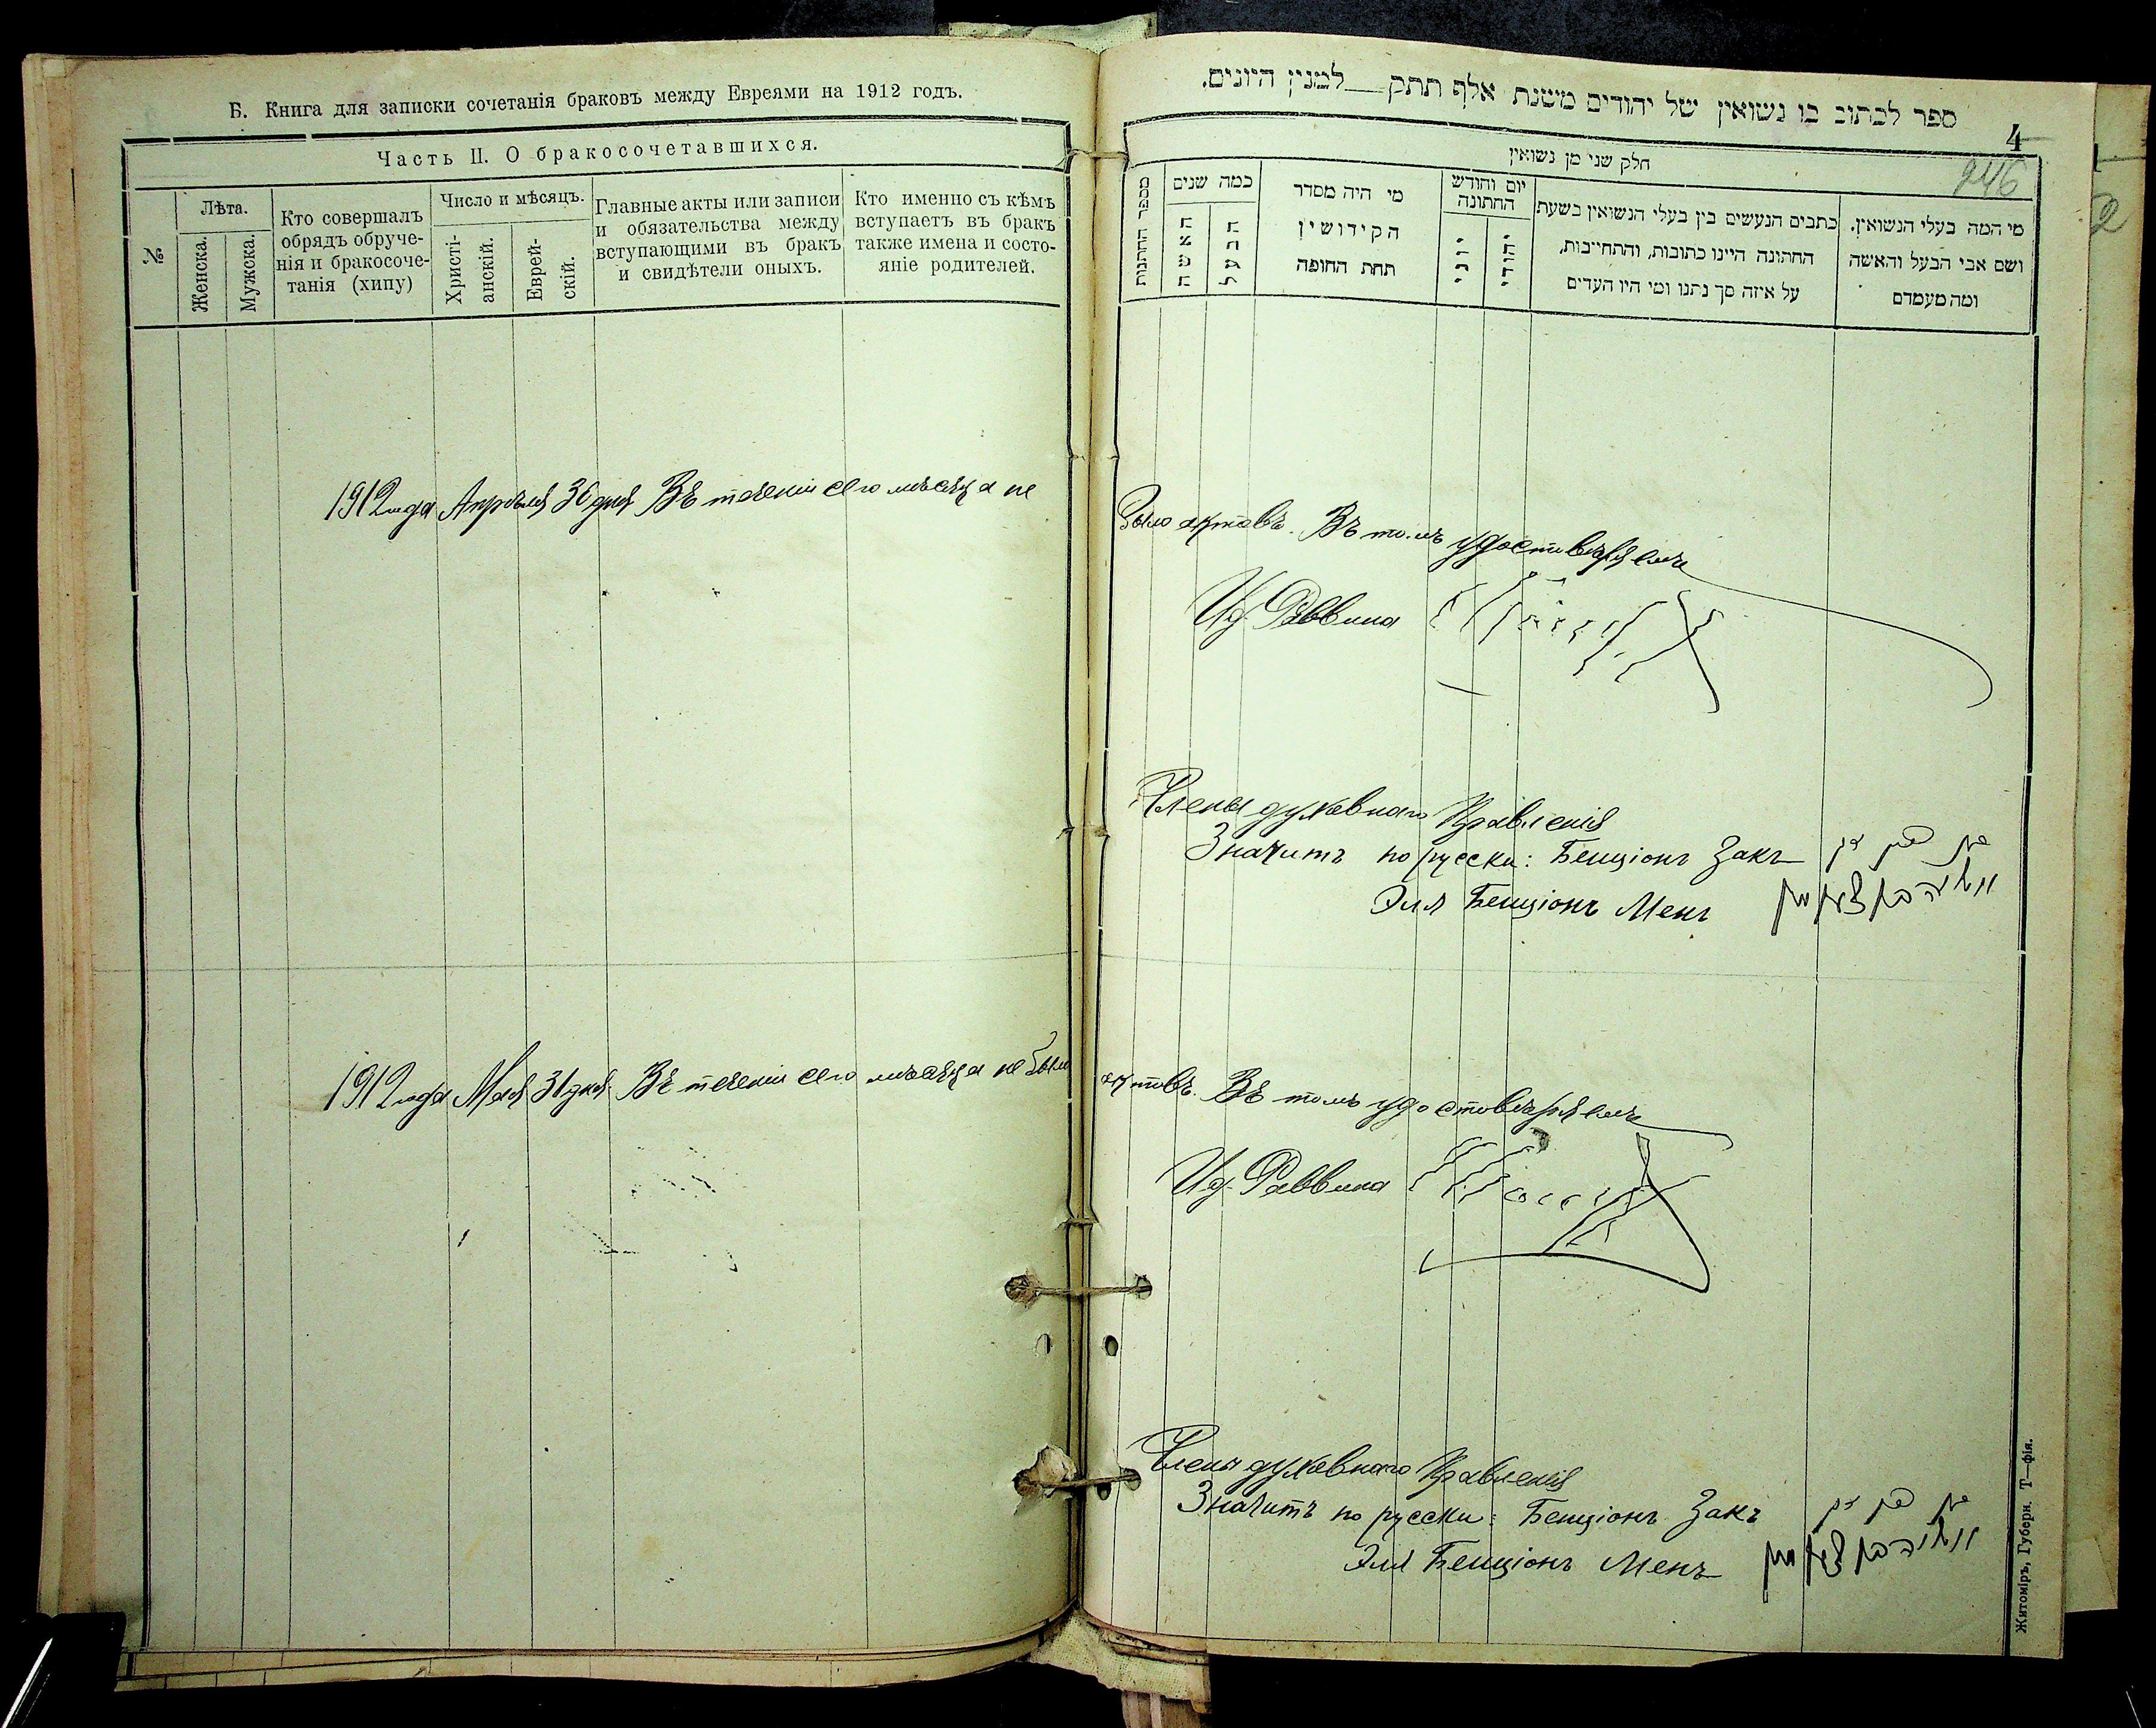 Б. Книга для записки сочетанія браковъ между Евреями на 1912 годъ.
Часть II. О бракосочетавшихся.
№
Лѣта.
Женска.
Мужска.
Кто совершалъ
обрядъ обруче-
нія и бракосоче-
танія (хипу)
Число и мѣсяцъ.
Христі-
анскій.
Еврей-
скій.
Главные акты или записи
и обязательства между
вступающими въ бракъ
и свидѣтели оныхъ.
Кто именно съ кѣмъ
вступаетъ въ бракъ
также имена и состо-
яніе родителей.
1912 года Апрѣля 30 дня Въ теченіи сего мѣсяца не
1912 года Мая 31 дня. Въ теченіи сего мѣсяца не было
ספר לכתוב בו נשואין של יהודים משנת אלף תתק למנין היונים.
4
246
2
חלק שני מן נשואין
מספר החתונות
כמה שנים
האשה
הבעל
מי היה מסדר
הקידושין
תחת החופה
יום וחודש
החתונה
יוני
יהודי
כתבים הנעשים בין בעלי הנשואין בשעת
החתונה היינו כתובות, והתחייבות,
על איזה סך נתנו ומי היו העדים
מי המה בעלי הנשואין.
ושם אבי הבעל והאשה
ומה מעמדם
было актовъ. Въ томъ удостовѣряемъ
И. д. Раввина
Члены духовнаго Правленія
Значитъ по русски: Бенціонъ Закъ
Эля Бенціонъ Менъ
актовъ. Въ томъ удостовѣряемъ
И. д. Раввина
Члены духовнаго Правленія
Значитъ по русски: Бенціонъ Закъ
Эля Бенціонъ Менъ
Житоміръ, Губерн. Т—фія.